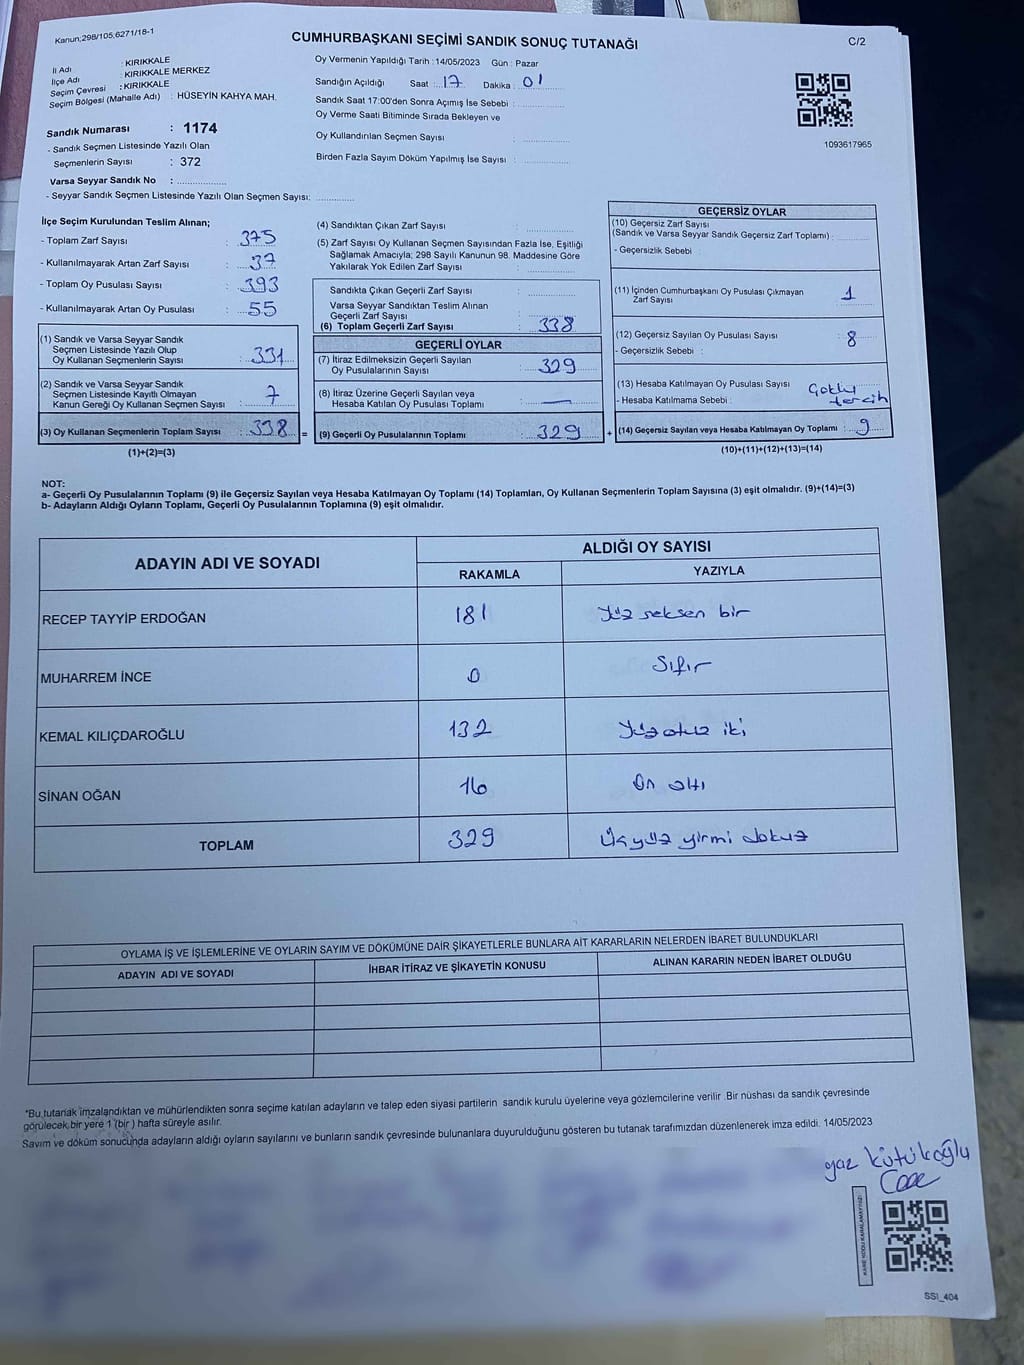 Kanun;298/105,6271/18-1
CUMHURBAŞKANI SEÇİMİ SANDIK SONUÇ TUTANAĞI
C/2
İl Adı : KIRIKKALE
İlçe Adı : KIRIKKALE MERKEZ
Seçim Çevresi : KIRIKKALE
Seçim Bölgesi (Mahalle Adı) : HÜSEYİN KAHYA MAH.
Sandık Numarası : 1174
- Sandık Seçmen Listesinde Yazılı Olan
Seçmenlerin Sayısı : 372
Varsa Seyyar Sandık No : ..................
- Seyyar Sandık Seçmen Listesinde Yazılı Olan Seçmen Sayısı: ..............
Oy Vermenin Yapıldığı Tarih : 14/05/2023 Gün : Pazar
Sandığın Açıldığı Saat : 17 Dakika : 01
Sandık Saat 17:00'den Sonra Açımış İse Sebebi : ..............
Oy Verme Saati Bitiminde Sırada Bekleyen ve
Oy Kullandırılan Seçmen Sayısı : ..............
Birden Fazla Sayım Döküm Yapılmış İse Sayısı : ..............
1093617965
İlçe Seçim Kurulundan Teslim Alınan;
- Toplam Zarf Sayısı : 375
- Kullanılmayarak Artan Zarf Sayısı : 37
- Toplam Oy Pusulası Sayısı : 393
- Kullanılmayarak Artan Oy Pusulası : 55
(1) Sandık ve Varsa Seyyar Sandık
Seçmen Listesinde Yazılı Olup
Oy Kullanan Seçmenlerin Sayısı : 331
(2) Sandık ve Varsa Seyyar Sandık
Seçmen Listesinde Kayıtlı Olmayan
Kanun Gereği Oy Kullanan Seçmen Sayısı : 7
(3) Oy Kullanan Seçmenlerin Toplam Sayısı : 338 =
(1)+(2)=(3)
(4) Sandıktan Çıkan Zarf Sayısı : ..............
(5) Zarf Sayısı Oy Kullanan Seçmen Sayısından Fazla İse, Eşitliği
Sağlamak Amacıyla; 298 Sayılı Kanunun 98. Maddesine Göre
Yakılarak Yok Edilen Zarf Sayısı : ..............
Sandıkta Çıkan Geçerli Zarf Sayısı : ..............
Varsa Seyyar Sandıktan Teslim Alınan
Geçerli Zarf Sayısı : ..............
(6) Toplam Geçerli Zarf Sayısı : 338
GEÇERLİ OYLAR
(7) İtiraz Edilmeksizin Geçerli Sayılan
Oy Pusulalarının Sayısı : 329
(8) İtiraz Üzerine Geçerli Sayılan veya
Hesaba Katılan Oy Pusulası Toplamı : —
(9) Geçerli Oy Pusulalarının Toplamı : 329 +
GEÇERSİZ OYLAR
(10) Geçersiz Zarf Sayısı
(Sandık ve Varsa Seyyar Sandık Geçersiz Zarf Toplamı) : ..........
- Geçersizlik Sebebi
(11) İçinden Cumhurbaşkanı Oy Pusulası Çıkmayan
Zarf Sayısı : 1
(12) Geçersiz Sayılan Oy Pusulası Sayısı : 8
- Geçersizlik Sebebi :
(13) Hesaba Katılmayan Oy Pusulası Sayısı
- Hesaba Katılmama Sebebi :
Çoklu
tercih
(14) Geçersiz Sayılan veya Hesaba Katılmayan Oy Toplamı : 9
(10)+(11)+(12)+(13)=(14)
NOT:
a- Geçerli Oy Pusulalarının Toplamı (9) ile Geçersiz Sayılan veya Hesaba Katılmayan Oy Toplamı (14) Toplamları, Oy Kullanan Seçmenlerin Toplam Sayısına (3) eşit olmalıdır. (9)+(14)=(3)
b- Adayların Aldığı Oyların Toplamı, Geçerli Oy Pusulalarının Toplamına (9) eşit olmalıdır.
ADAYIN ADI VE SOYADI
ALDIĞI OY SAYISI
RAKAMLA YAZIYLA
RECEP TAYYİP ERDOĞAN 181 Yüz seksen bir
MUHARREM İNCE 0 Sıfır
KEMAL KILIÇDAROĞLU 132 Yüz otuz iki
SİNAN OĞAN 16 On altı
TOPLAM 329 Üçyüz yirmi dokuz
OYLAMA İŞ VE İŞLEMLERİNE VE OYLARIN SAYIM VE DÖKÜMÜNE DAİR ŞİKAYETLERLE BUNLARA AİT KARARLARIN NELERDEN İBARET BULUNDUKLARI
ADAYIN ADI VE SOYADI İHBAR İTİRAZ VE ŞİKAYETİN KONUSU ALINAN KARARIN NEDEN İBARET OLDUĞU
*Bu tutanak imzalandıktan ve mühürlendikten sonra seçime katılan adayların ve talep eden siyasi partilerin sandık kurulu üyelerine veya gözlemcilerine verilir .Bir nüshası da sandık çevresinde
görülecek bir yere 1 (bir ) hafta süreyle asılır.
Sayım ve döküm sonucunda adayların aldığı oyların sayılarını ve bunların sandık çevresinde bulunanlara duyurulduğunu gösteren bu tutanak tarafımızdan düzenlenerek imza edildi. 14/05/2023
kütükoğlu
KARE KODU KARALAMAYINIZ!
SSI_404